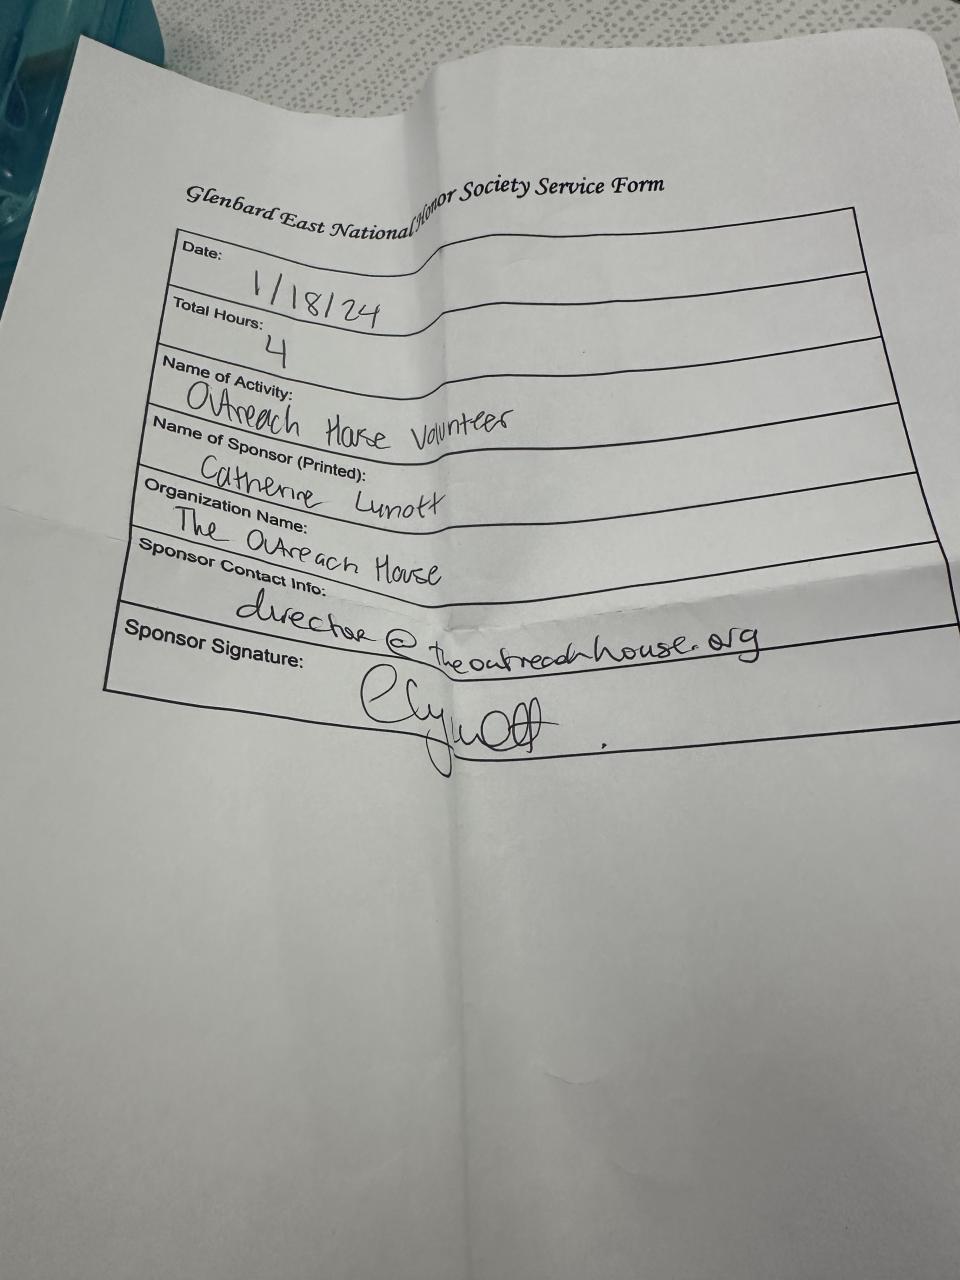 Glenbard East National Honor Society Service Form
Date:
1/18/24
Total Hours:
4
Name of Activity:
Outreach House Volunteer
Name of Sponsor (Printed):
Catherine Lynott
Organization Name:
The Outreach House
Sponsor Contact Info:
director@theoutreachhouse.org
Sponsor Signature: